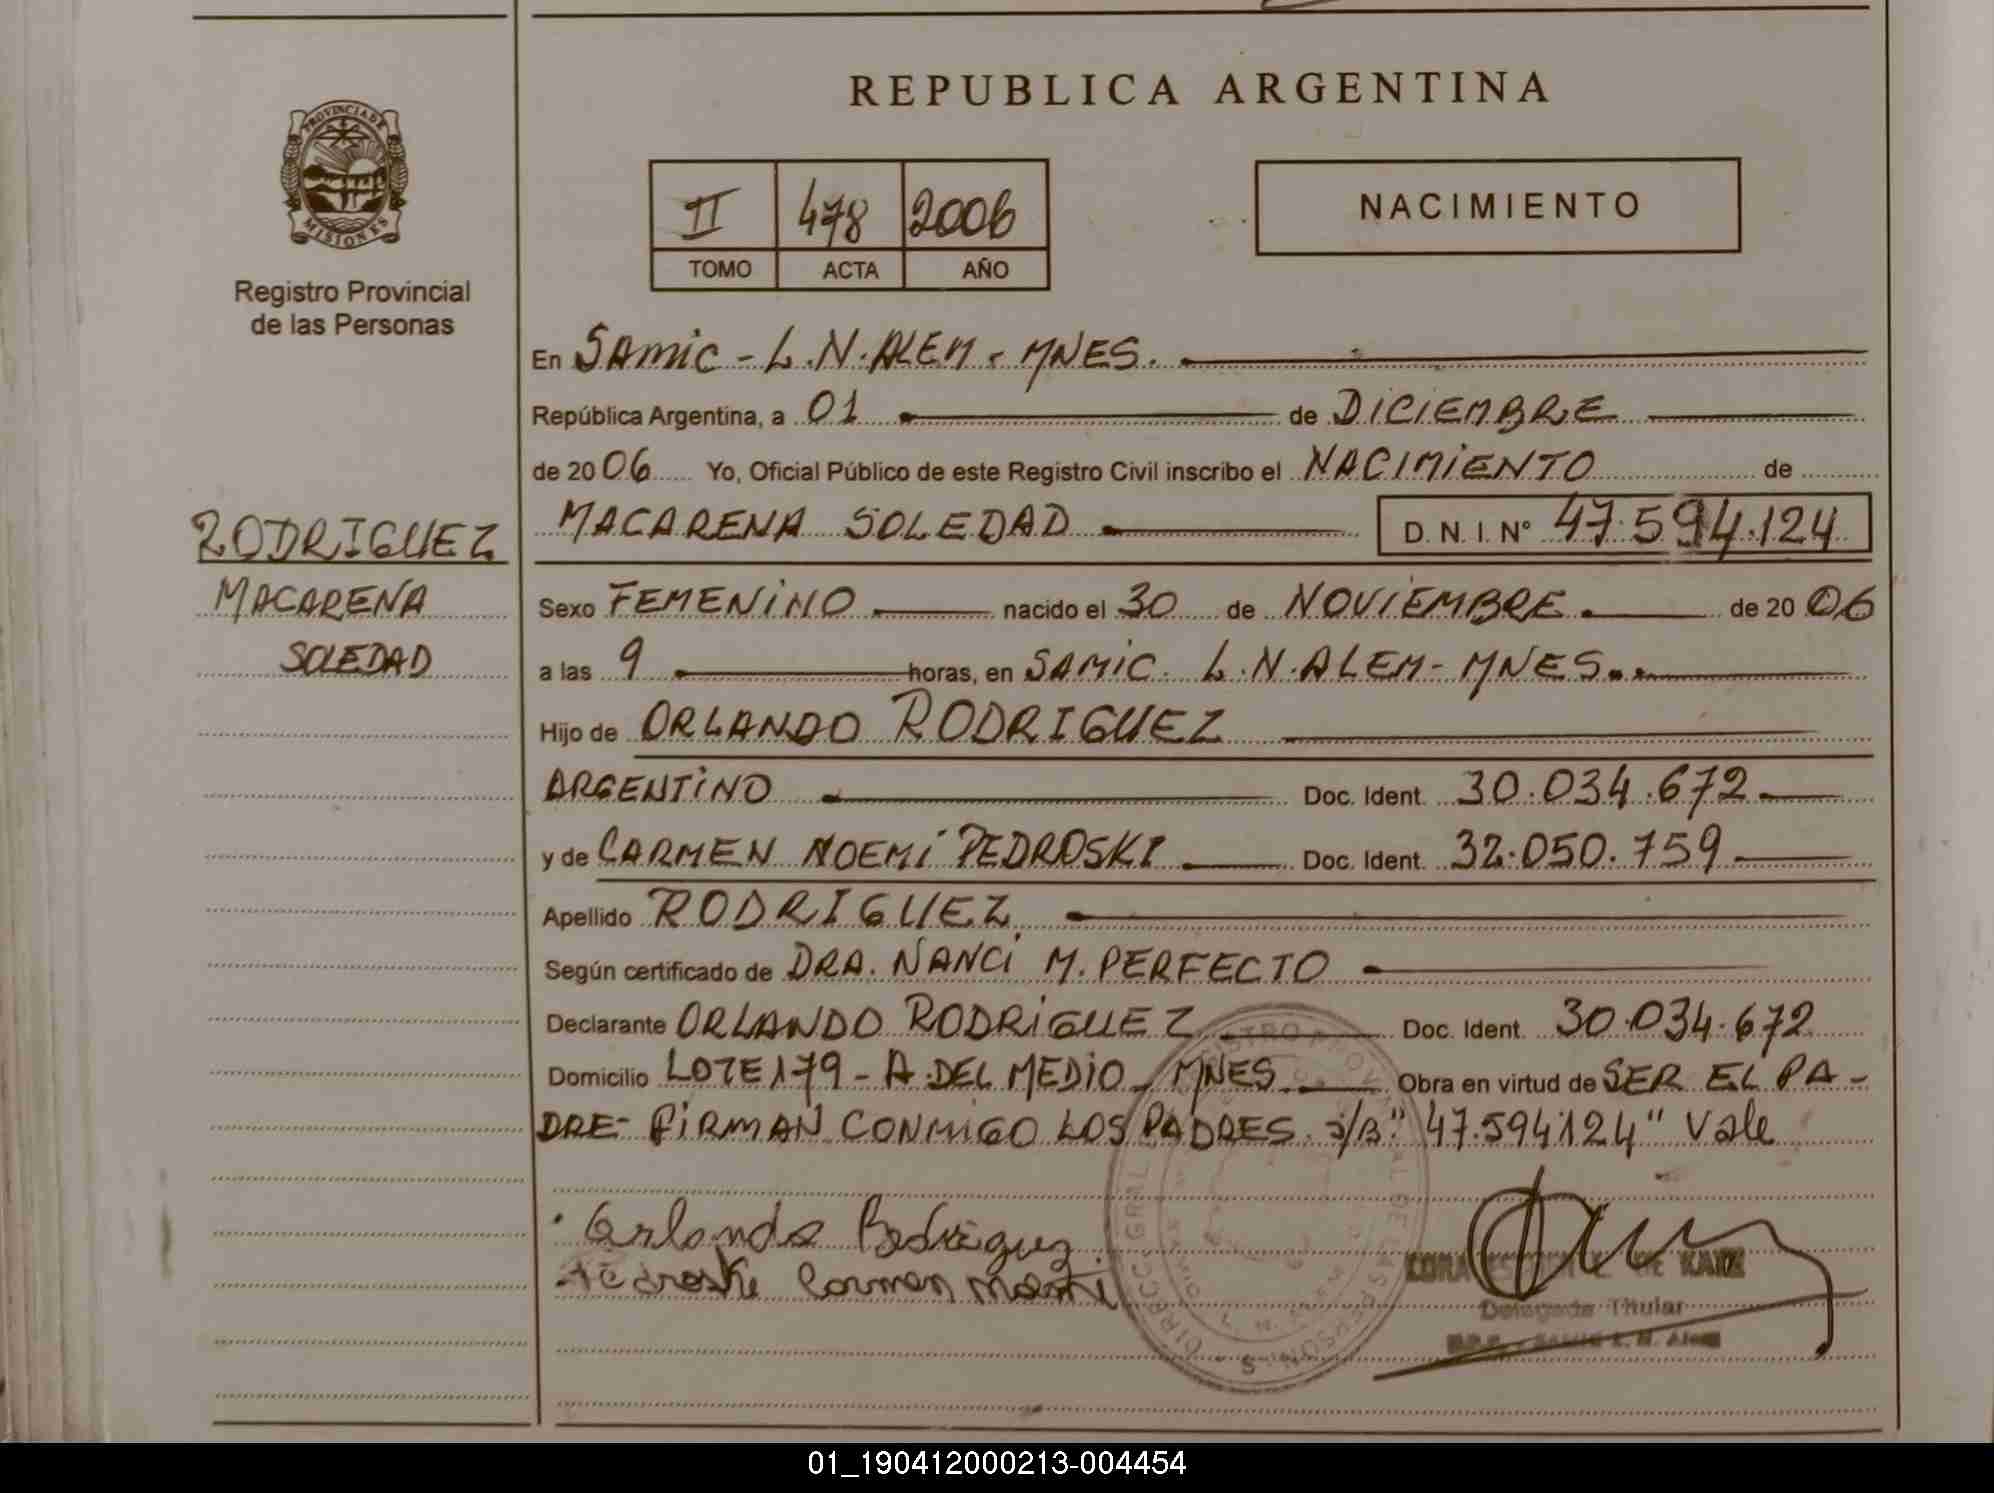 REPUBLICA ARGENTINA
PROVINCIA DE
MISIONES
Registro Provincial
de las Personas
II 478 2006
TOMO ACTA AÑO
NACIMIENTO
En SAMIC - L.N.ALEM - MNES.
República Argentina, a 01 de DICIEMBRE
de 2006 Yo, Oficial Público de este Registro Civil inscribo el NACIMIENTO de
MACARENA SOLEDAD D.N.I. N° 47.594.124
RODRIGUEZ
MACARENA
SOLEDAD
Sexo FEMENINO nacido el 30 de NOVIEMBRE de 2006
a las 9 horas, en SAMIC. L.N.ALEM - MNES.
Hijo de ORLANDO RODRIGUEZ
ARGENTINO Doc. Ident. 30.034.672
y de CARMEN NOEMI PEDROSKI Doc. Ident. 32.050.759
Apellido RODRIGUEZ
Según certificado de DRA. NANCI M. PERFECTO
Declarante ORLANDO RODRIGUEZ Doc. Ident. 30.034.672
Domicilio LOTE 179 - A. DEL MEDIO - MNES Obra en virtud de SER EL PA-
DRE - FIRMAN CONMIGO LOS PADRES. S/B: "47.594.124" Vale
Orlando Rodriguez
Pedroski Carmen Noemi
DE KATZ
Delegada Titular
L. N. Alem
01_190412000213-004454